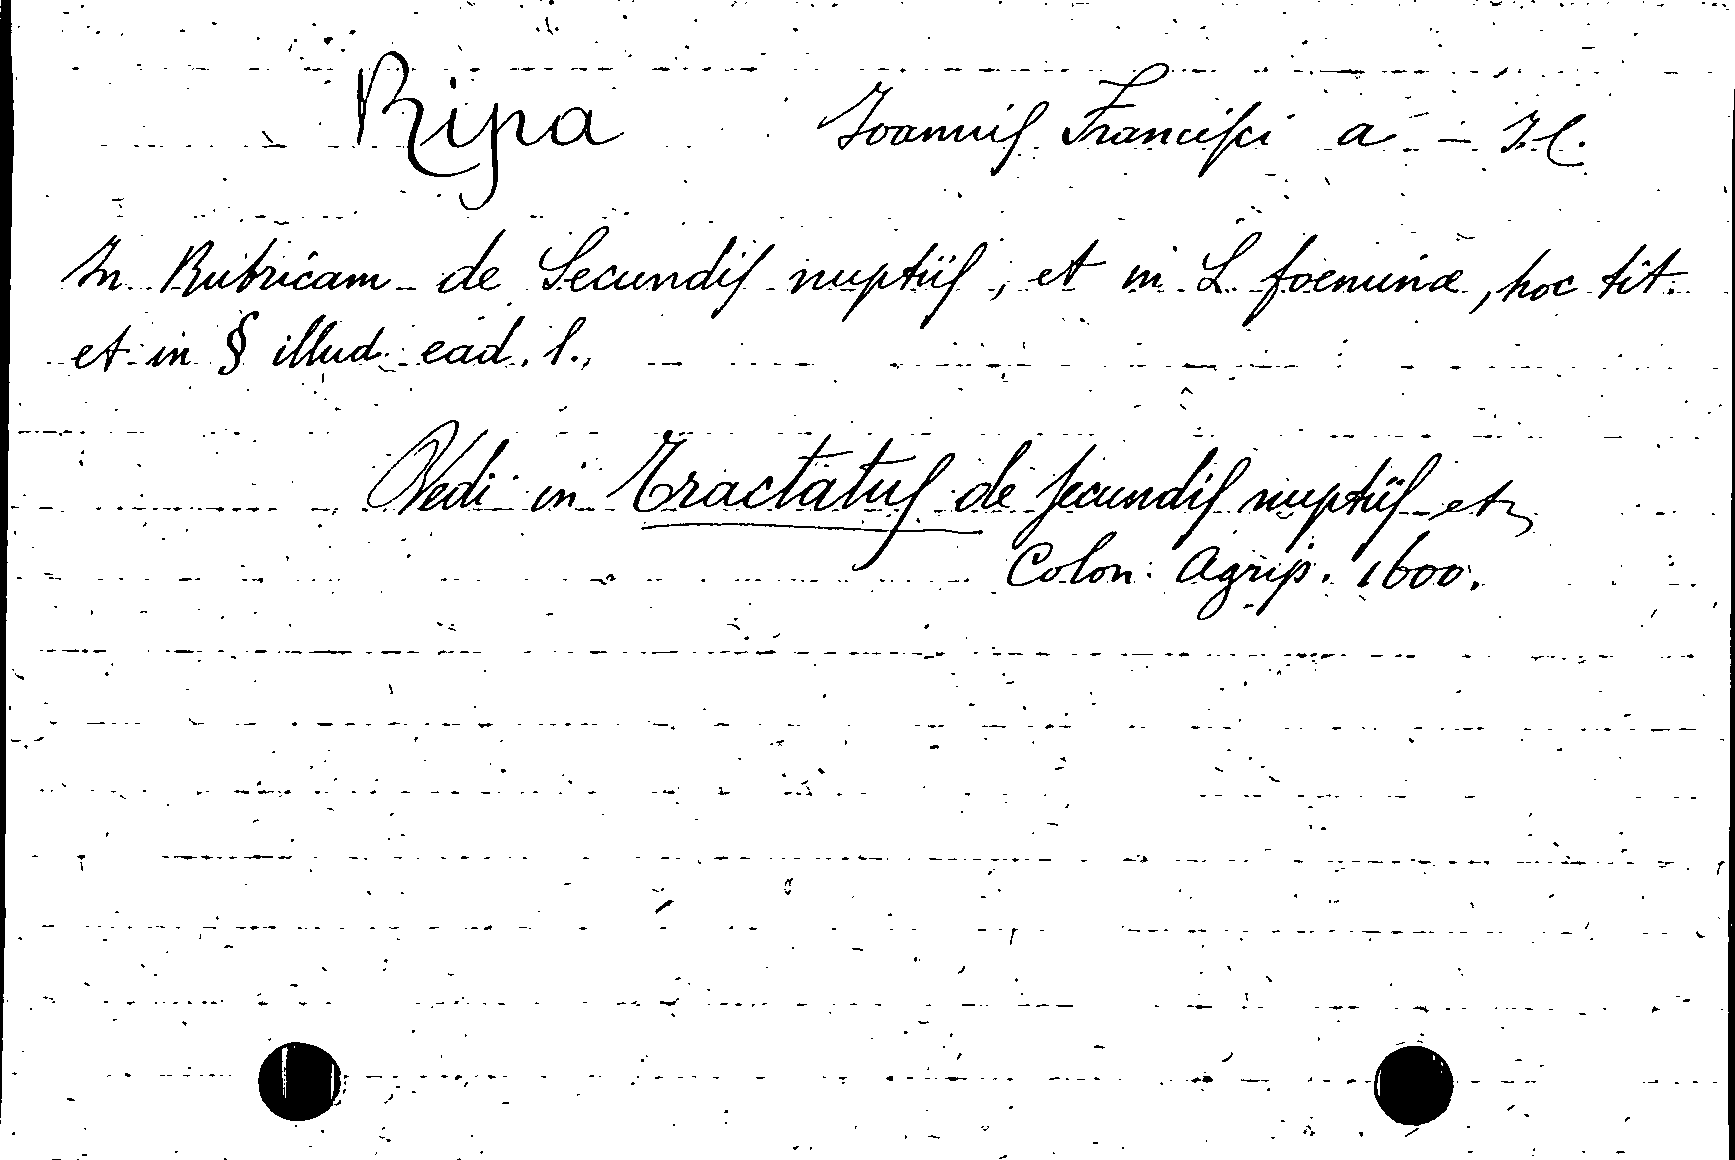 Ripa Joannis Francisci a - J.C.
In Rubricam de Secundis nuptiis, et in L. foeminæ, hoc tit.
et in § illud ead. l.,
Vedi in Tractatus de secundis nuptiis etc
Colon: Agrip. 1600.